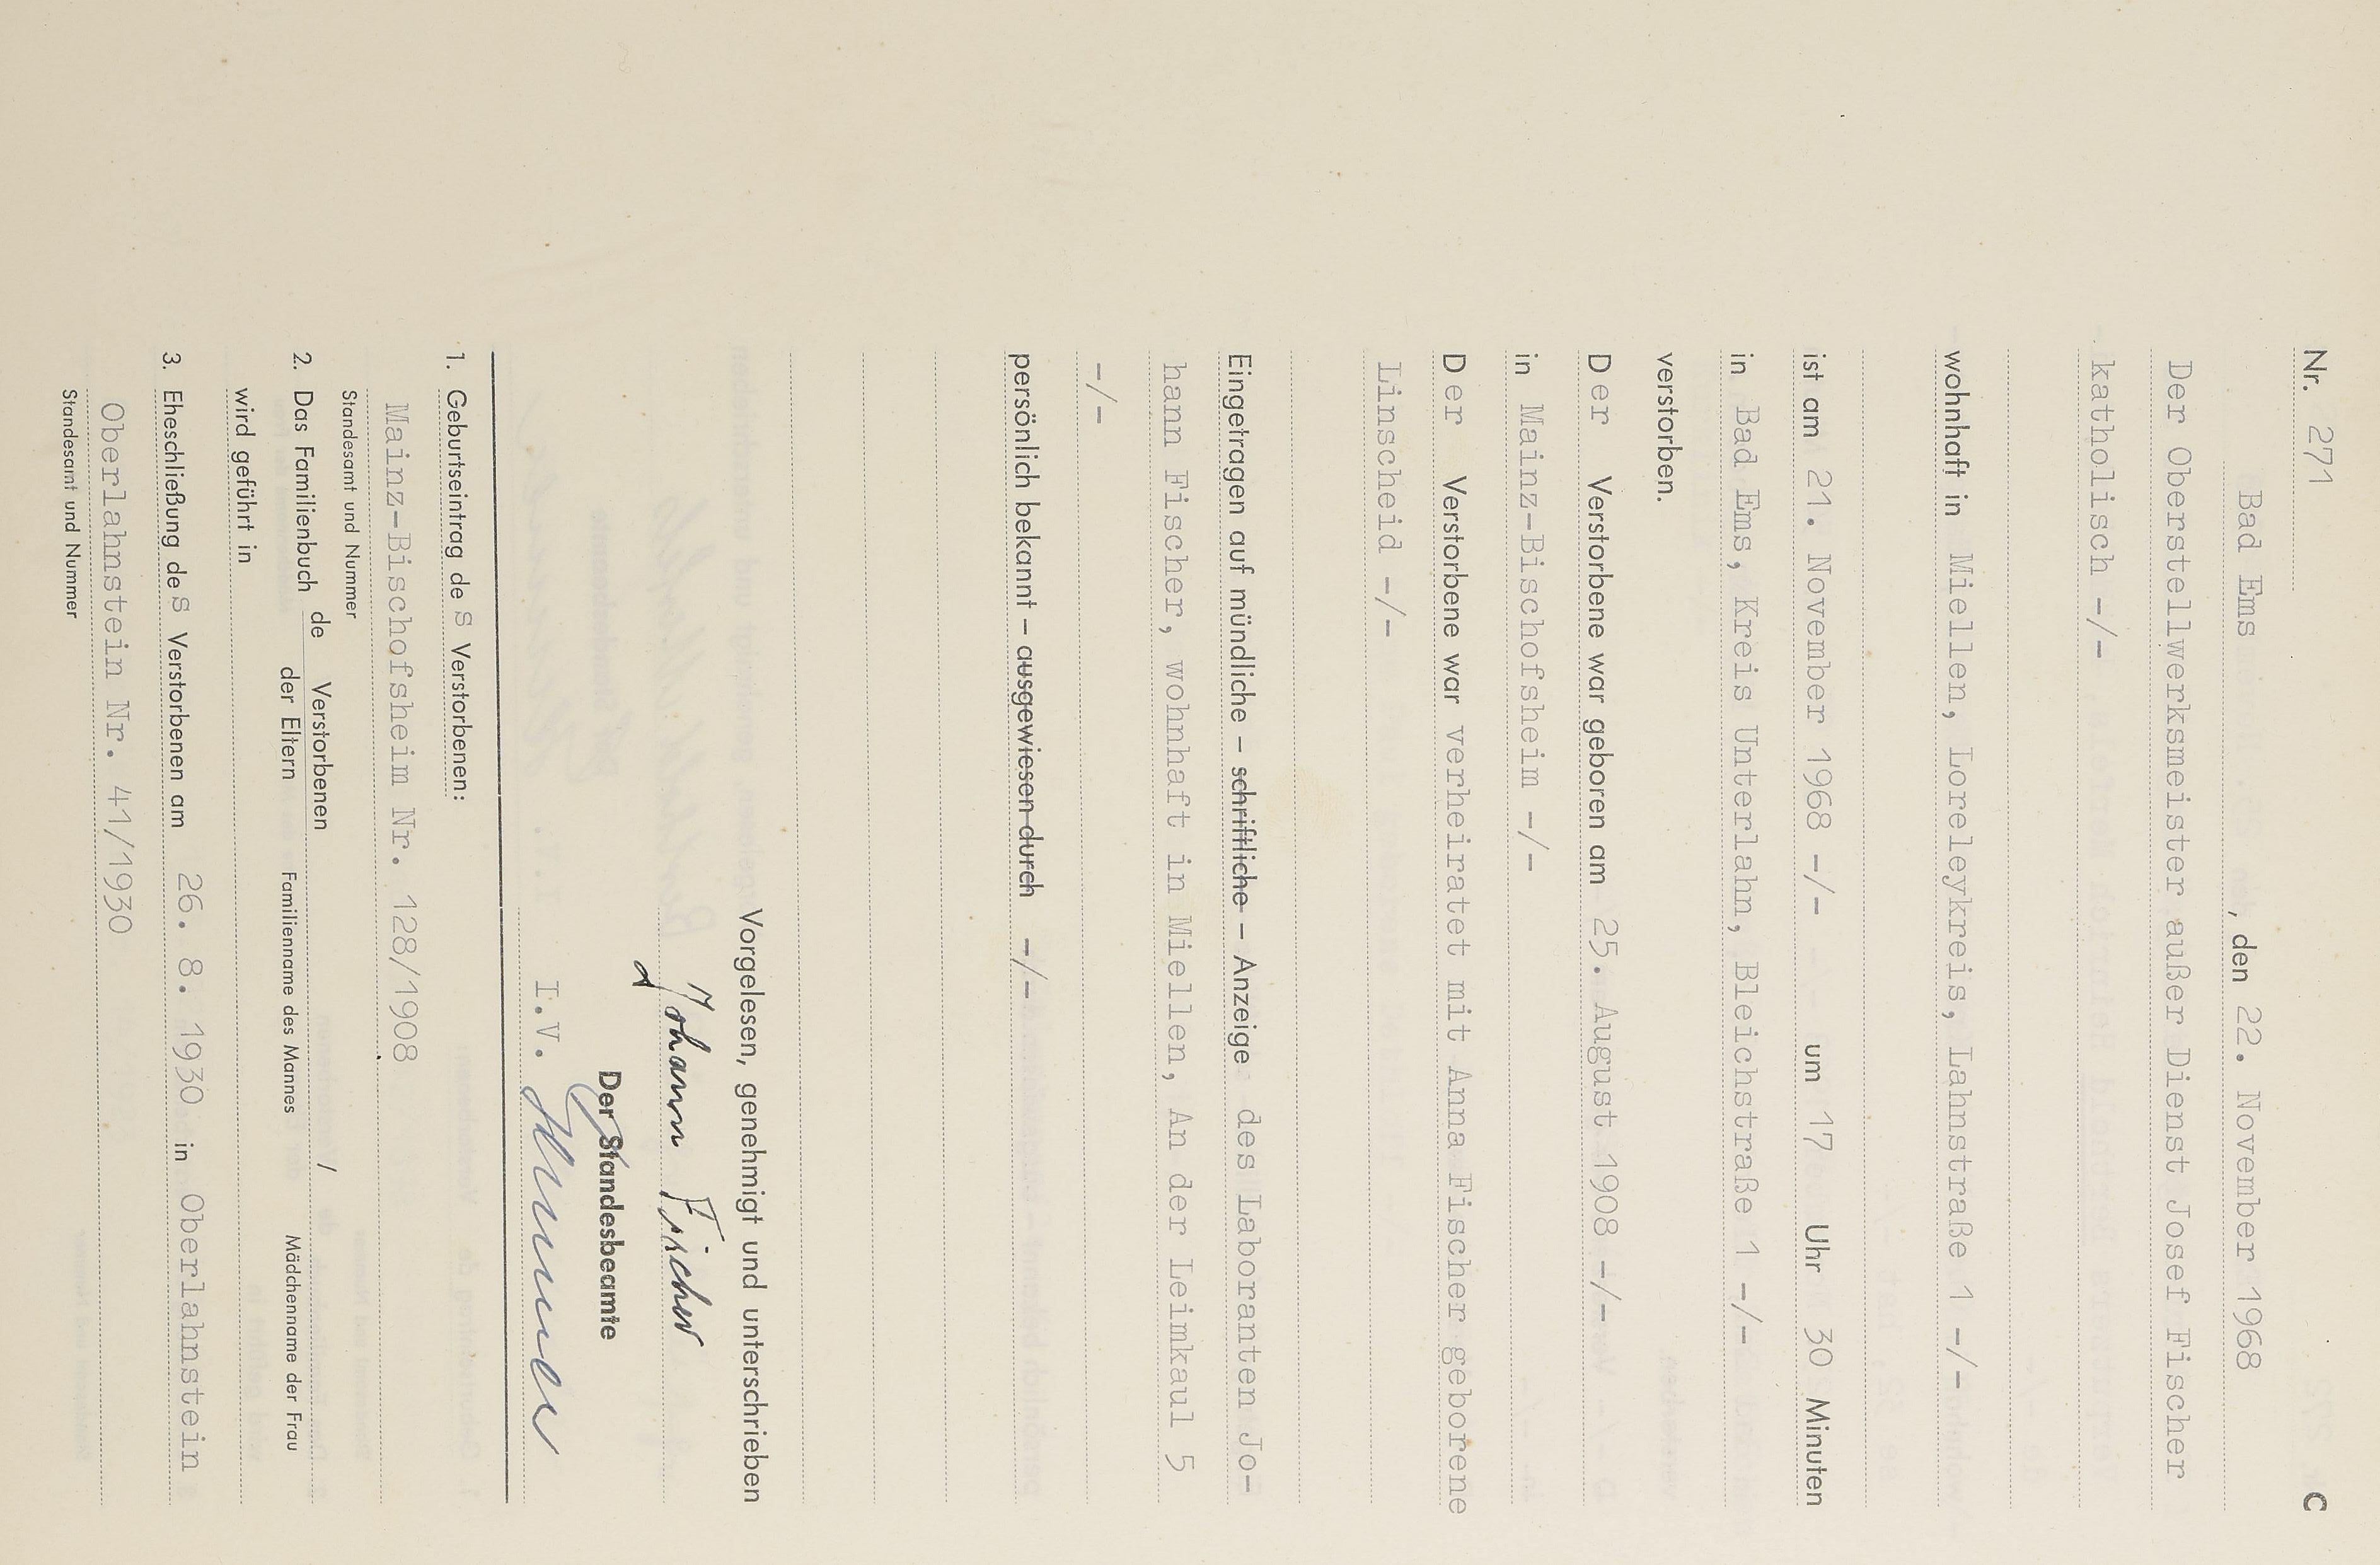 C
Nr. 271
Bad Ems, den 22. November 1968
Der Oberstellwerksmeister außer Dienst Josef Fischer
katholisch -/-
wohnhaft in Miellen, Loreleykreis, Lahnstraße 1 -/-
ist am 21. November 1968 -/- um 17 Uhr 30 Minuten
in Bad Ems, Kreis Unterlahn, Bleichstraße 1 -/-
verstorben.
Der Verstorbene war geboren am 25. August 1908 -/-
in Mainz-Bischofsheim -/-
Der Verstorbene war verheiratet mit Anna Fischer geborene
Linscheid -/-
Eingetragen auf mündliche – schriftliche – Anzeige des Laboranten Jo-
hann Fischer, wohnhaft in Miellen, An der Leimkaul 5
-/-
persönlich bekannt – ausgewiesen durch -/-
Vorgelesen, genehmigt und unterschrieben
Johann Fischer
Der Standesbeamte
I.V.
1. Geburtseintrag des Verstorbenen:
Mainz-Bischofsheim Nr. 128/1908
Standesamt und Nummer
2. Das Familienbuch de Verstorbenen /
der Eltern Familienname des Mannes Mädchenname der Frau
wird geführt in
3. Eheschließung des Verstorbenen am 26. 8. 1930 in Oberlahnstein
Oberlahnstein Nr. 41/1930
Standesamt und Nummer